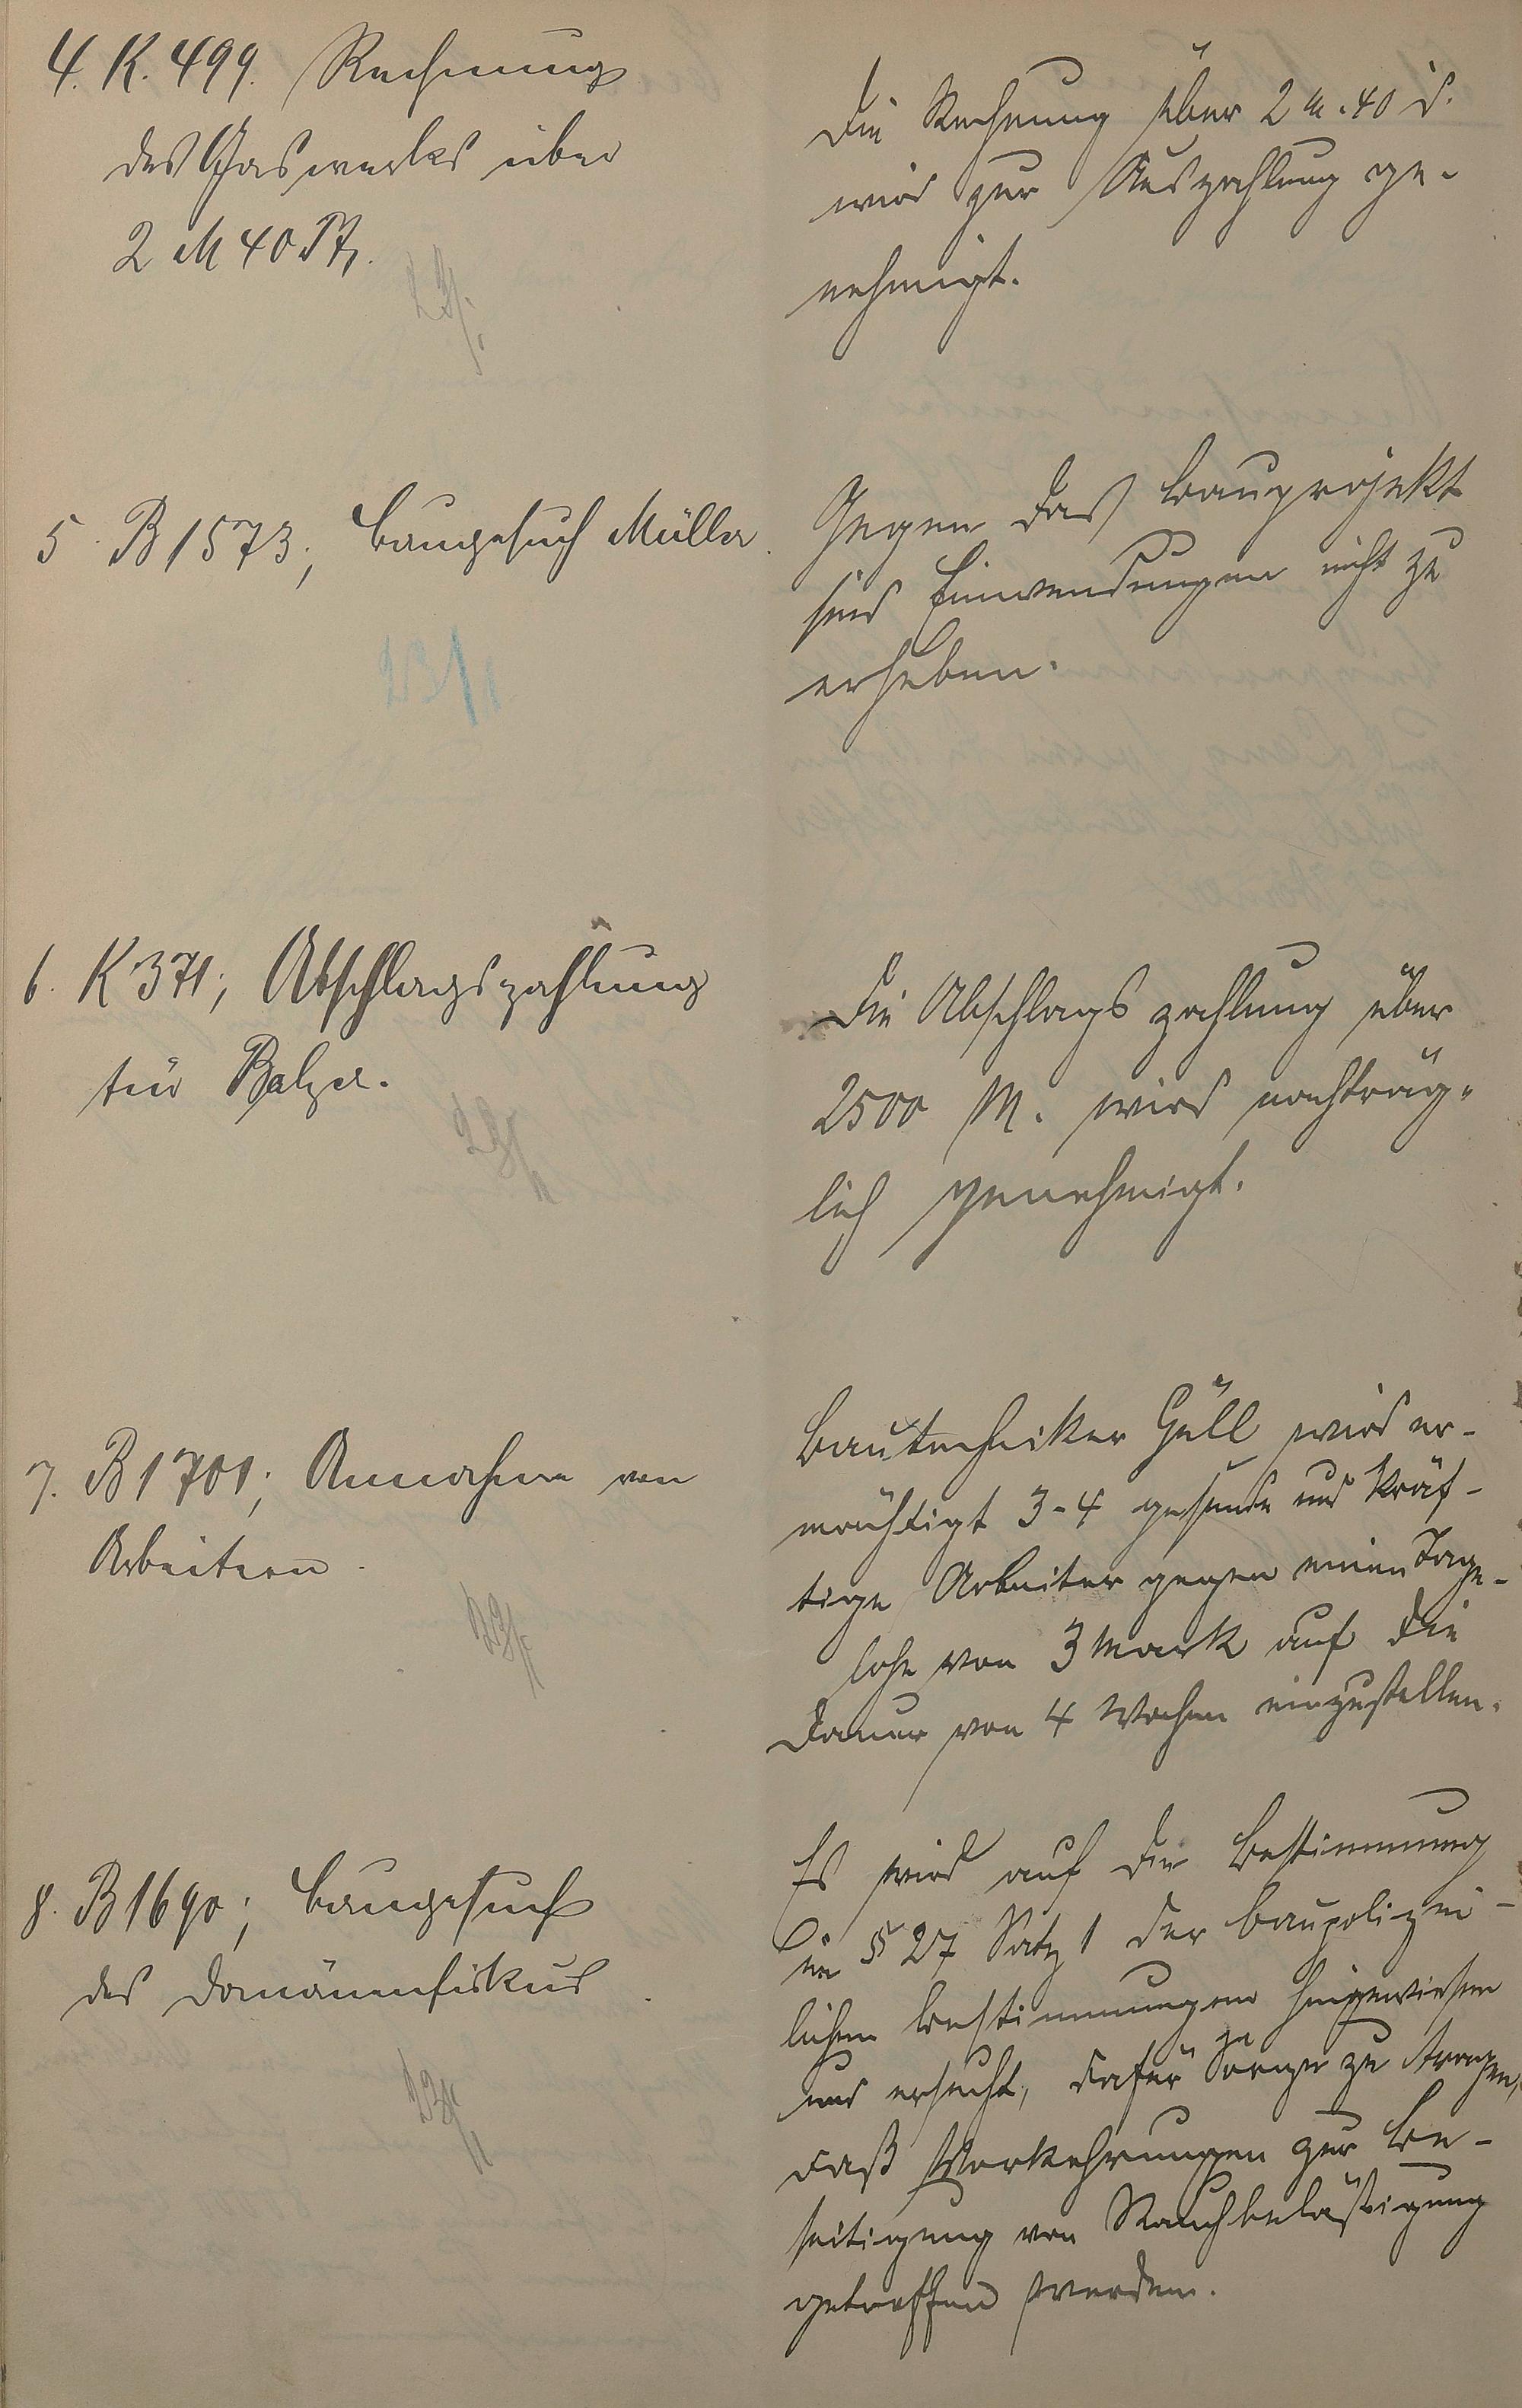 4. K. 499. Rechnung
des Gaswerks über
2 M 40 Pf.
Die Rechnung über 2 M. 40 d.
wird zur Auszahlung ge-
nehmigt.
5. B 1573; Baugesuch Müller.
Gegen das Bauprojekt
sind Einwendungen nicht zu
erheben.
6. K 371; Abschlagszahlung
für Balzer.
Die Abschlagszahlung über
2500 M. wird nachträg-
lich genehmigt.
7. B 1701; Annahme von
Arbeitern.
Bautechniker Güll wird er-
mächtigt 3-4 gesunde und kräf-
tige Arbeiter gegen einen Tage-
lohn von 3 Mark auf die
Dauer von 4 Wochen einzustellen.
8. B 1690; Baugesuch
des Domänenfiskus.
Es wird auf die Bestimmung
in § 27 Satz 1 der baupolizei-
lichen Bestimmungen hingewiesen
und ersucht, dafür Sorge zu tragen,
daß Vorkehrungen zur Be-
seitigung von Rauchbelästigung
getroffen werden.